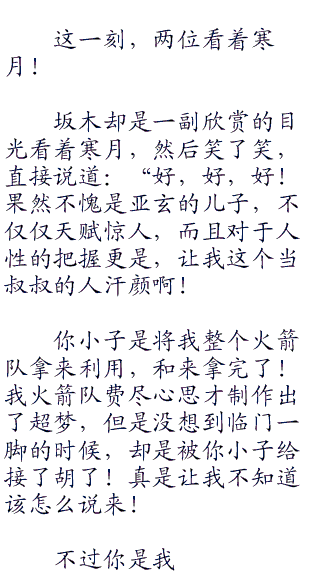 这一刻，两位看着寒
月！
坂木却是一副欣赏的目
光看着寒月，然后笑了笑，
直接说道：“好，好，好！
果然不愧是亚玄的儿子，不
仅仅天赋惊人，而且对于人
性的把握更是，让我这个当
叔叔的人汗颜啊！
你小子是将我整个火箭
队拿来利用，和来拿完了！
我火箭队费尽心思才制作出
了超梦，但是没想到临门一
脚的时候，却是被你小子给
接了胡了！真是让我不知道
该怎么说来！
不过你是我